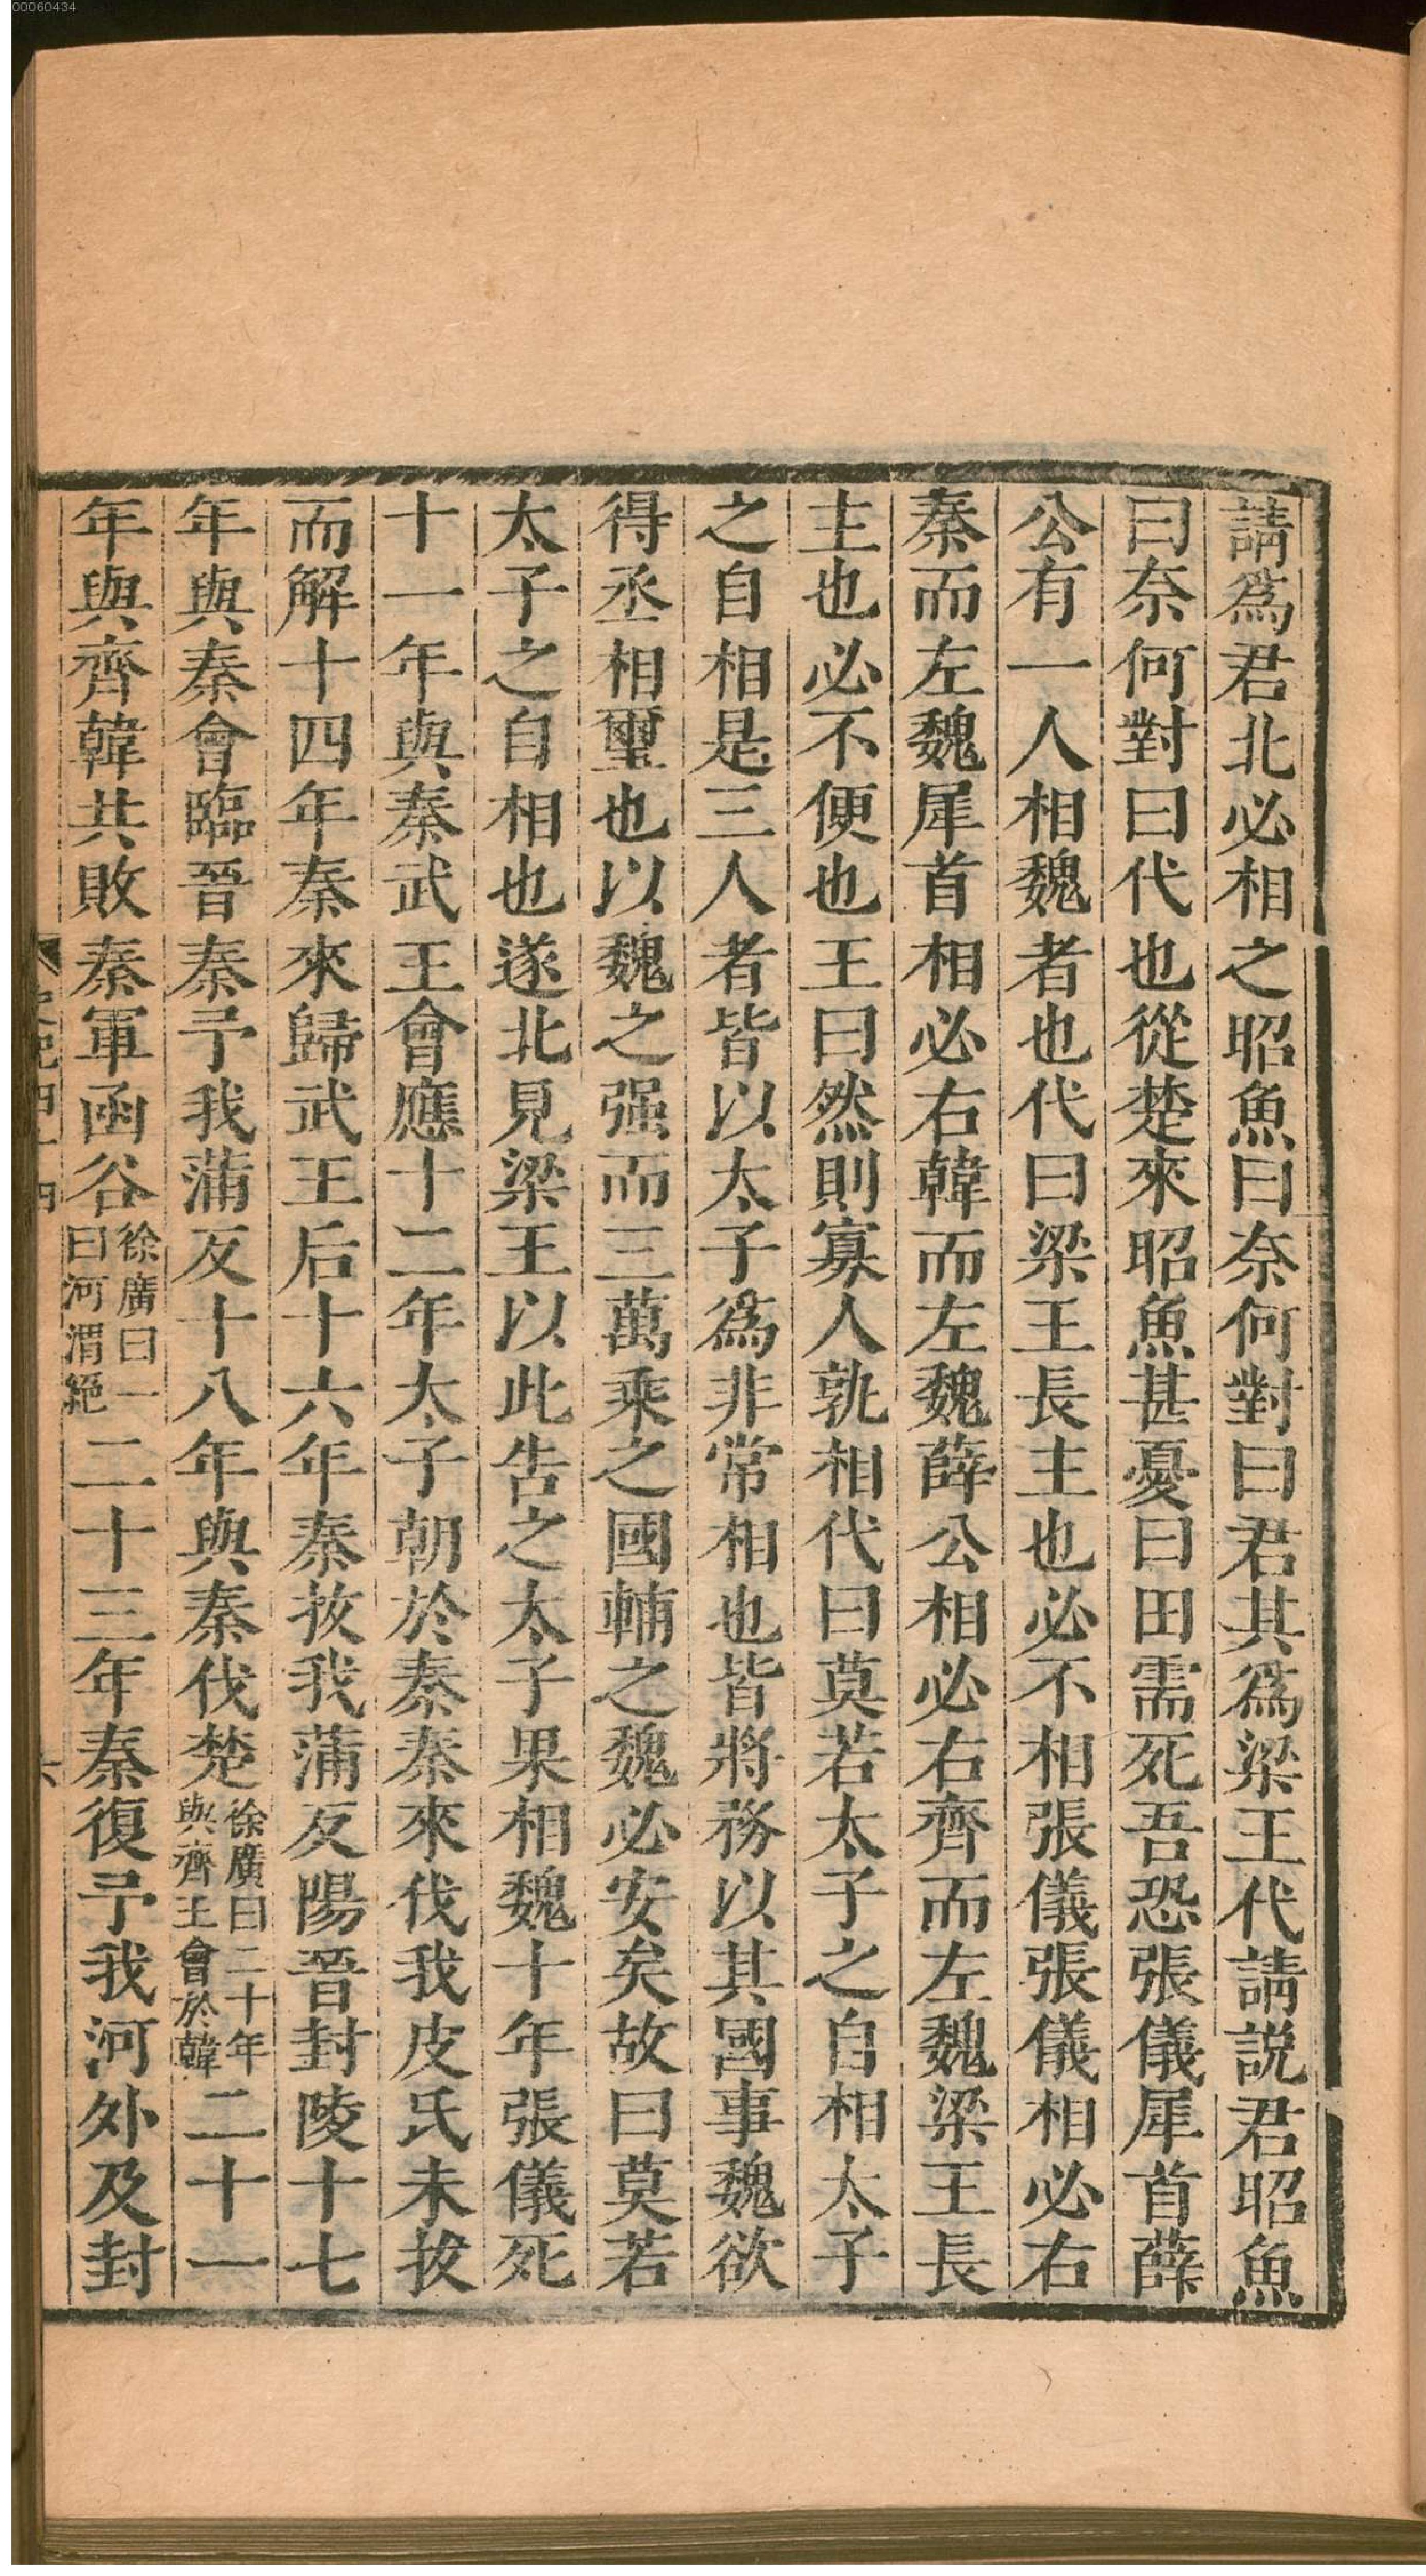 00060434
請爲君北必相之昭魚曰奈何對曰君其爲梁王代請説君昭魚
曰奈何對曰代也從楚來昭魚甚憂曰田需死吾恐張儀犀首薛
公有一人相魏者也代曰梁王長主也必不相張儀張儀相必右
秦而左魏犀首相必右韓而左魏薛公相必右齊而左魏梁王長
主也必不便也王曰然則寡人孰相代曰莫若太子之自相太子
之自相是三人者皆以太子爲非常相也皆將務以其國事魏欲
得丞相璽也以魏之强而三萬乘之國輔之魏必安矣故曰莫若
太子之自相也遂北見梁王以此告之太子果相魏十年張儀死
十一年與秦武王會應十二年太子朝於秦秦來伐我皮氏未拔
而解十四年秦來歸武王后十六年秦拔我蒲反陽晉封陵十七
年與秦會臨晉秦予我蒲反十八年與秦伐楚徐廣曰二十年與齊王會於韓二十一
年與齊韓共敗秦軍函谷徐廣曰一曰河渭絕二十三年秦復予我河外及封
史記四十四
六